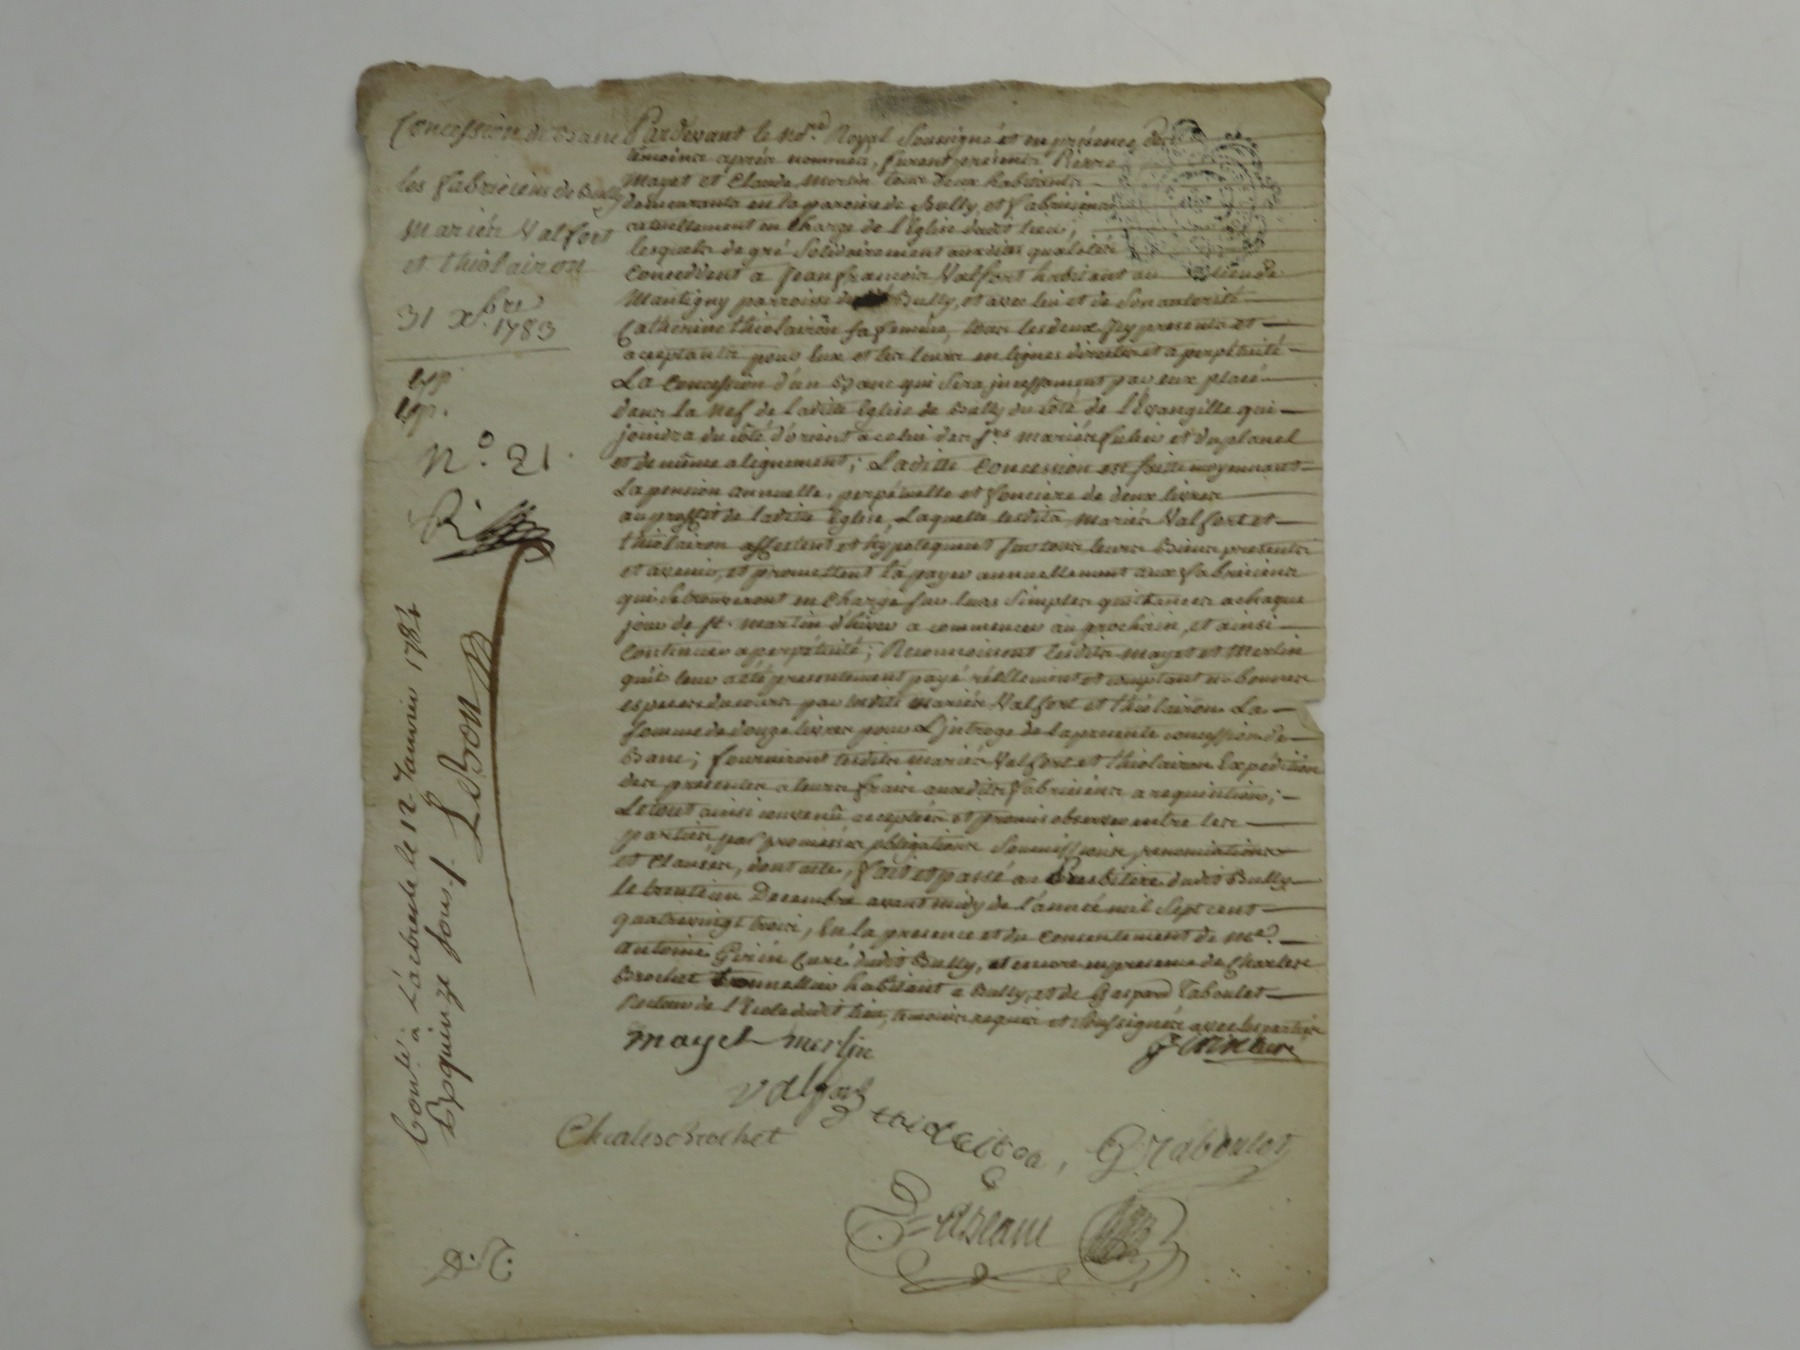 Concession de Banc
les fabriciens de Bully
Mariés Valfort
et thiolairon
31 xbre 1783
exp
exp.
N.o 21.
Pardevant le No.re Royal Soussigné et en présence des
témoins après nommés, furent présents Pierre
Mayet et Claude Merlin tous deux habitants
demeurants en la paroisse de Bully, et fabriciens
actuellement en Charge de l'Eglise dudit lieu,
lesquels de gré Solidairement auxdites qualités
Concedent a Jean françois Valfort habitant au lieu de
Montigny parroisse de Bully, et avec lui et de Son autorité
Catherine thiolairon sa femme, tous les deux jcy presents et
acceptants pour Eux et les leurs en lignes directes et a perpétuité
La Concession d'un Banc qui Sera jncessament par eux placé
dans la Nef de laditte Eglise de Bully du Côté de l'Evangille qui
joindra du côté d'orient a celui des Mariés et duplanel
et de même alignement; Laditte Concession est faite moyennant
La pension annuelle, perpétuelle et fonciere de deux livres
au proffit de laditte Eglise, Laquelle lesdits Mariés Valfort et
thiolairon affectent et hypotequent sur tous leurs Biens presents
et avenir, et promettent la payer annuellement aux fabriciens
qui Se trouveront en Charge sur leurs Simples quittances a chaque
jour de st. Martin d'hiver a commencer au prochain, et ainsi
Continuer a perpétuité; Reconnoissent lesdits Mayet et Merlin
qu'il leur a été presentement payé réellement et comptant en bonnes
especes du cours par lesdits mariés Valfort et thiolairon La
Somme de douze livres pour L'jntroge de la presente concession de
Banc; fourniront lesdits mariés Valfort et thiolairon Expédition
des presentes a leurs frais auxdits fabriciens a requisition;
Le tout ainsi convenû accepté et promis observer entre les
parties, par promesses obligations Soumissions, renonciations
et Clauses, dont acte, fait et passé au Presbitere dudit Bully
le trente un Decembre avant midy de l'année mil Sept cent
quatrevingt trois, En la presence et du Consentement de Me.
Antoine Girin Curé dudit Bully, et encore en presence de Charles
Brochet habitant a Bully, et de Gaspard Taboulet
Recteur de l'Ecole dudit lieu, témoins requis et Soussignés avec les parties
mayet merlin
Girin curé
valfort
thiolairon
Charles Brochet
G Taboulet
Conté à L'arbresle le 12 Janvier 1784
quinze sous
LeBon